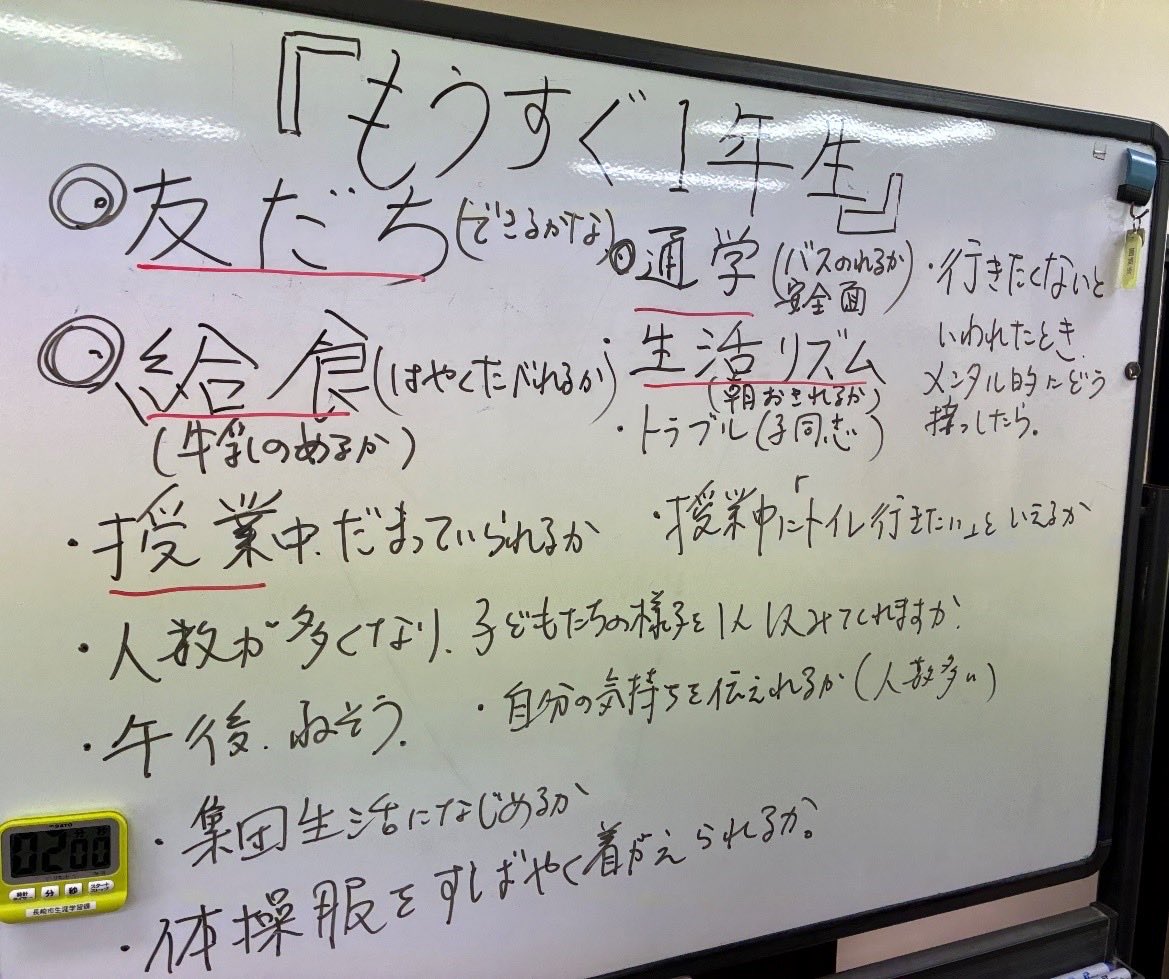 『もうすぐ1年生』
友だち(できるかな)
給食(はやくたべれるか)
(牛乳のめるか)
・授業中、だまっていられるか
・人数が多くなり、子どもたちの様子を1人1人みてくれますか。
・午後、ねそう。
・集団生活になじめるか
・体操服をすばやく着がえられるか。
通学(バスのれるか
安全面)
・生活リズム
(朝おきれるか)
・トラブル(子同志)
・行きたくないと
いわれたとき、
メンタル的にどう
接したら。
・授業中に「トイレ行きたい」といえるか
・自分の気持ちを伝えれるか(人数多い)
0200
分
秒
スタート
ストップ
長崎市生涯学習課